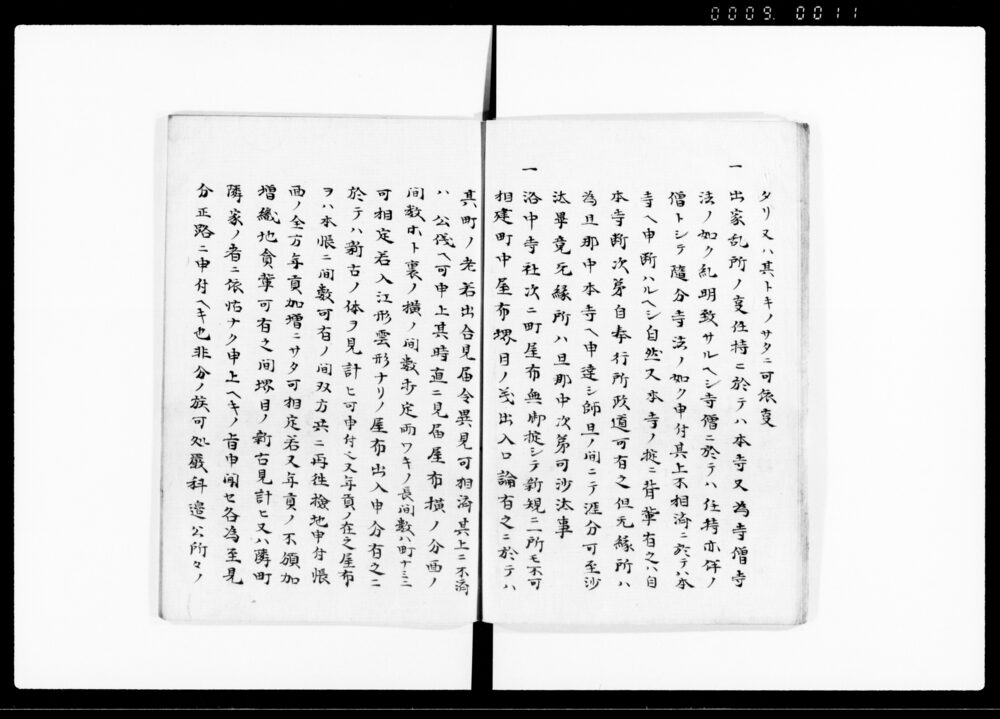 0009. 0011
タリ又ハ其トキノサタニ可依㕝
一 出家乱所ノ㕝住持ニ於テハ本寺又為寺僧寺
法ノ如ク乱明致サルヘシ寺僧ニ於テハ住持亦伴ノ
僧トシテ隨分寺法ノ如ク申付其上不相済ニ於テハ本
寺ヘ申断ハルヘシ自然又本寺ノ掟ニ背輩有之ハ自
本寺断次第自奉行所政道可有之但无縁所ハ
為旦那中本寺ヘ申達シ師旦ノ間ニテ涯分可至沙
汰畢竟无縁所ハ旦那中次第可沙汰事
一 洛中寺社次ニ町屋布無御掟シテ新規ニ一所モ不可
相建町中屋布堺目ノ出入口論有之ニ於テハ
其町ノ老若出合見届令異見可相済其上ニ不済
ハ公儀ヘ可申上其時直ニ見届屋布横ノ分画ノ
間数ホト裏ノ横ノ間数歩定両ワキノ長間数ハ町ナミニ
可相定若入江形雲形ナリノ屋布出入申分有之ニ
於テハ新古ノ体ヲ見計ヒ可申付之又年貢ノ在之屋布
ヲハ本帳ニ間数可有ノ間双方共ニ再往撿地申付帳
面ノ全方年貢加増ニサタ可相定若又年貢ノ不領加
増纔地貪輩可有之間堺目ノ新古見計ヒ又ハ隣町
隣家ノ者ニ依怙ナク申上ヘキノ旨申聞セ各為至見
分正路ニ申付ヘキ也非分ノ族可処嚴科邉公所々ノ